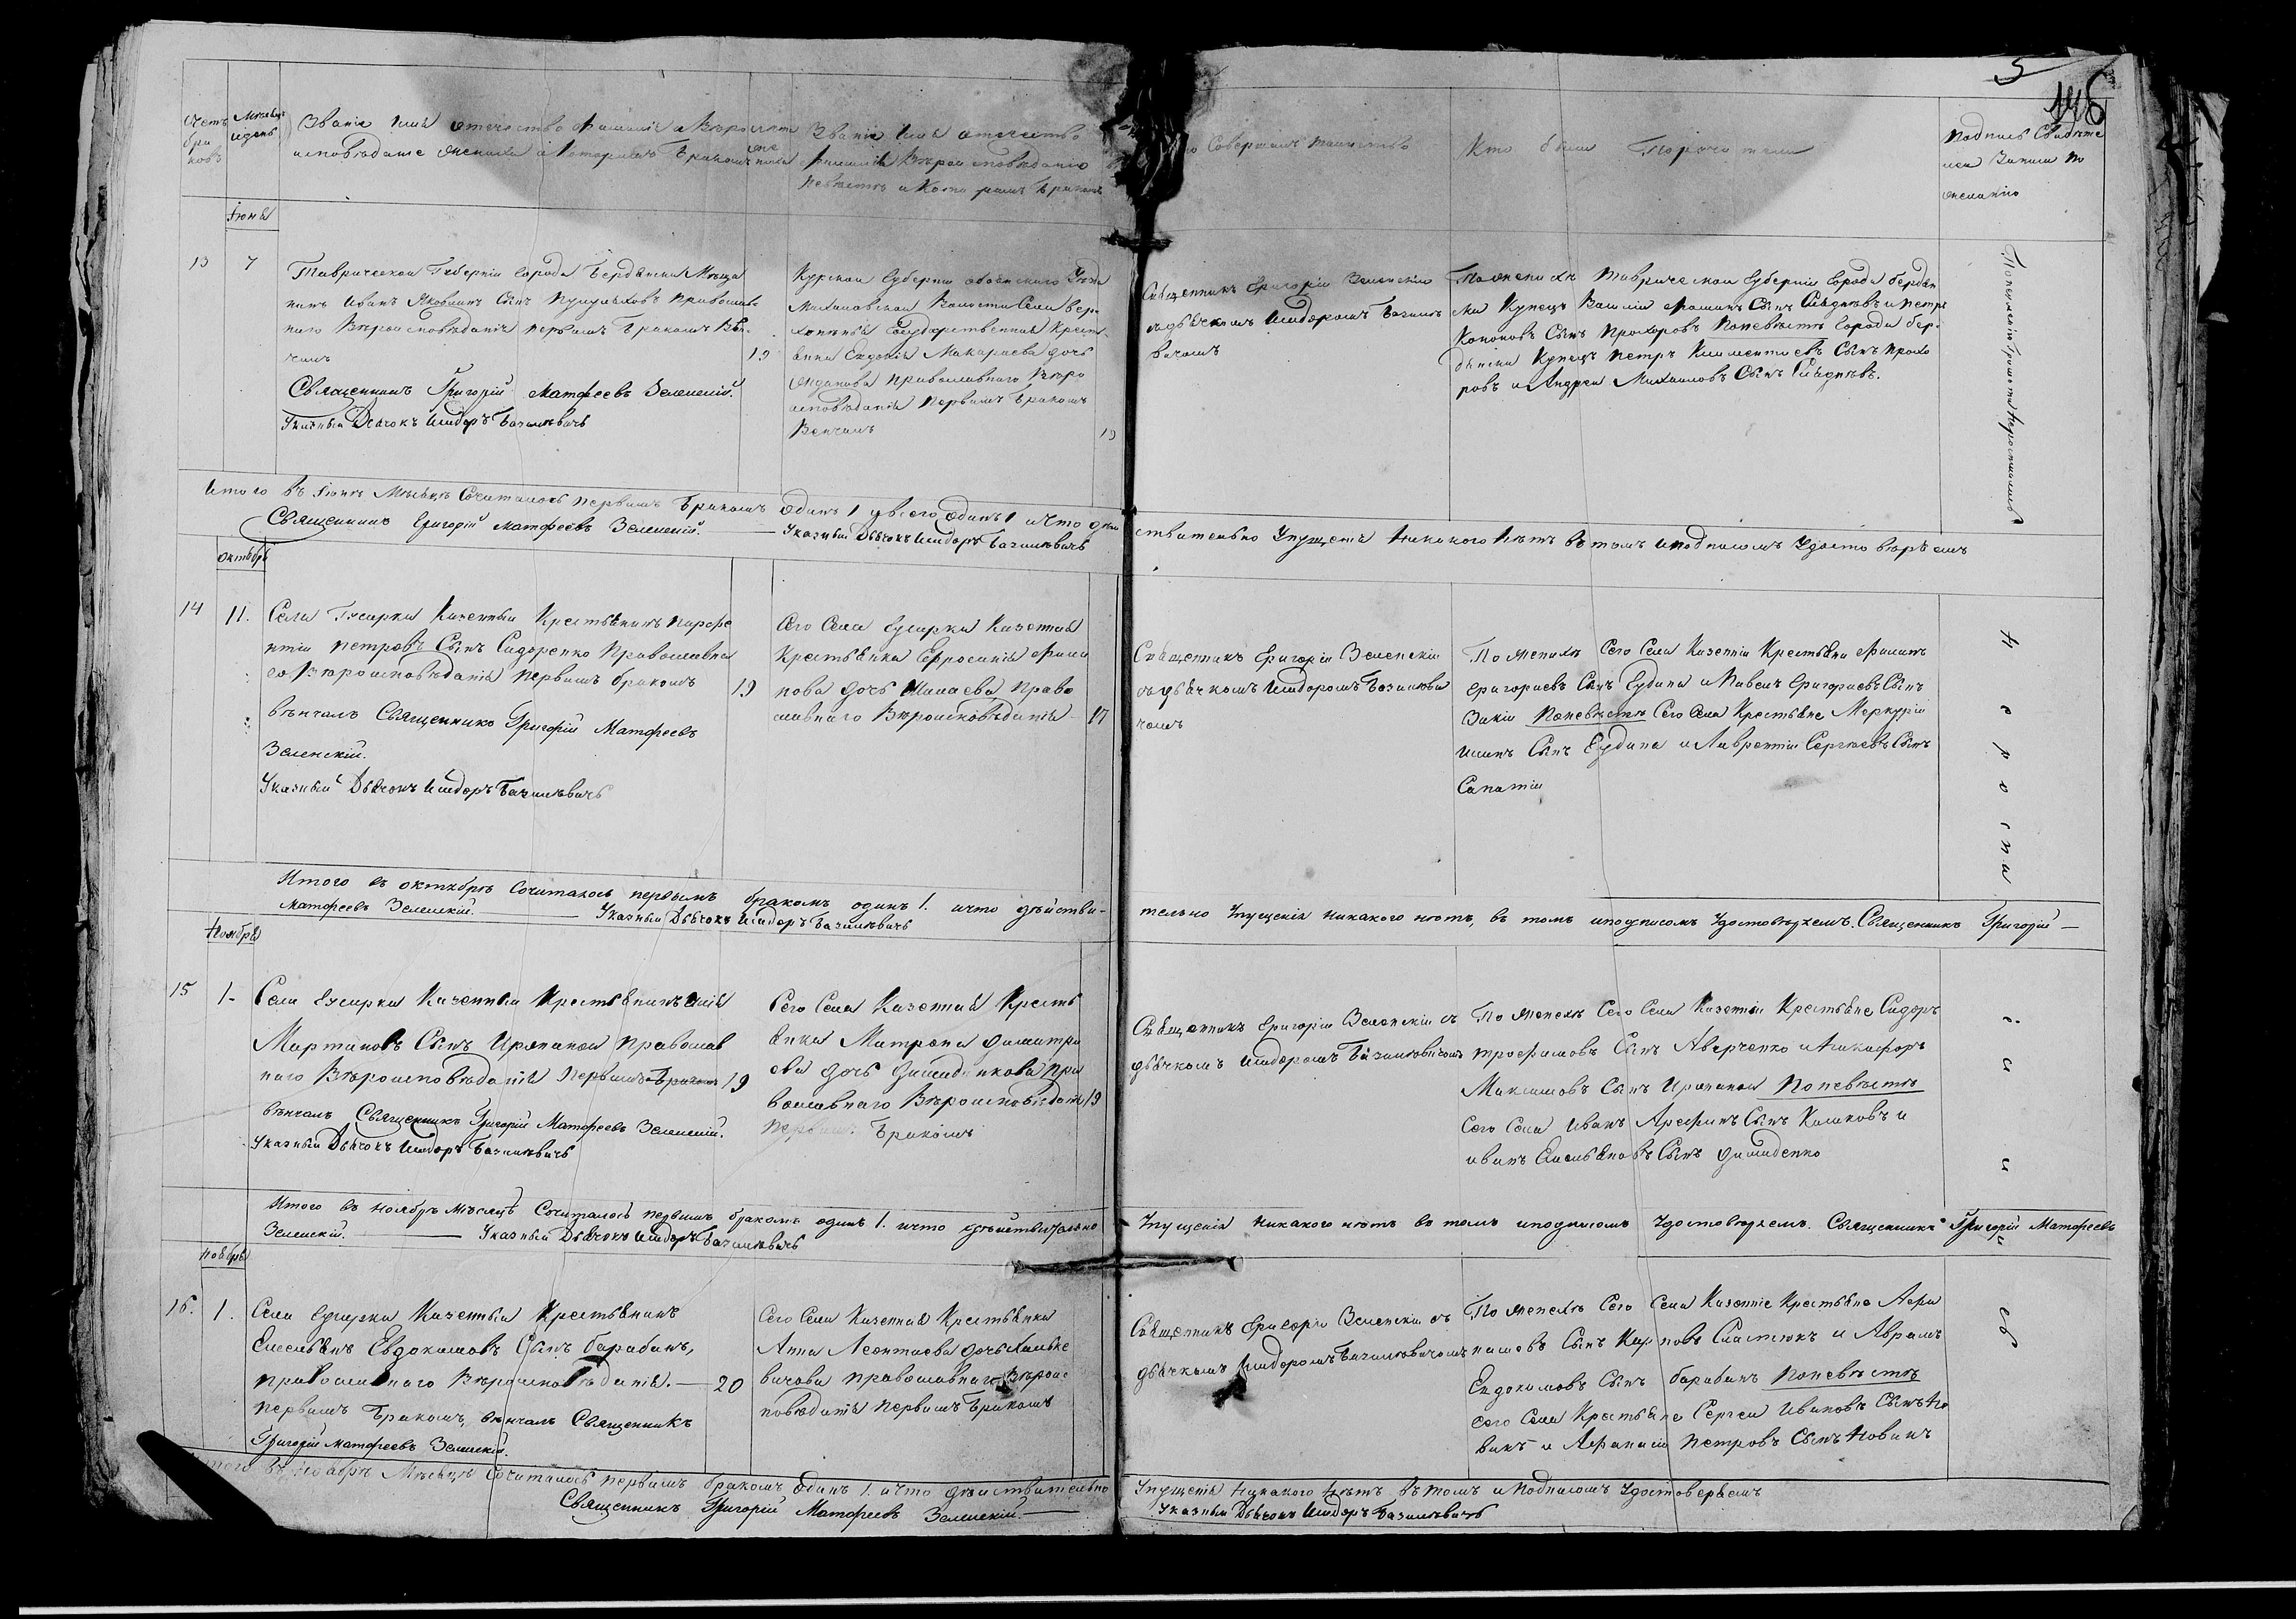 5
146
Счетъ браковъ
Мѣсяцъ и день
Званіе Имя отечество Фамилія и Вѣроисповѣданіе жениха и Которымъ Бракомъ
Званіе Имя отечество Фамилія Вѣроисповѣданіе невѣсты и Которымъ Бракомъ
Совершалъ таинство
Кто были Поручители
Подпись Свидѣтелей Записи по желанію
Іюня
13
7
Таврической Губерніи города Бердянска Мѣща
нинъ Иванъ Яковлевъ Сынъ православ-
наго Вѣроисповѣданія первымъ Бракомъ Вѣн-
чалъ
19
Священникъ Григорій Матфеевъ Зеленскій.
Указный Дьячокъ Исидоръ Базилевичъ
Курской Губерніи Обоянскаго Уѣзда
Волости Села Вер-
Государственная Крест-
янка Евдокія Макарьева дочь
Жданова Православнаго Вѣро
исповѣданія Первымъ Бракомъ
Венчалъ
19
Священникъ Григорій Зеленскій
съ дьячкомъ Исидоромъ Базиле
вичомъ
По женихѣ Таврической Губерніи Города Бердян
ска Купецъ Василій Фоминъ Сынъ и Петръ
Кононовъ Сынъ Прохоровъ Поневѣстѣ Города Бер-
дянска Купецъ Петръ Климентіевъ Сынъ Прохо
ровъ и Андрей Михайловъ Сынъ
Итого въ Іюнѣ Мѣсяцѣ Сочиталось первымъ Бракомъ Одинъ 1 а всего Одинъ 1 и что дѣй
ствительно Упущенія никакого нѣтъ въ томъ и подписомъ Удостовѣряемъ
Священникъ Григорій Матфеевъ Зеленскій. Указный Дьячокъ Исидоръ Базилевичъ
Октября
14
11.
Села Гусарки Казенный Крестьянинъ Парфе
нтій Петровъ Сынъ Сидоренко Православна
го Вѣроисповѣданія первымъ бракомъ
19
вѣнчалъ Священникъ Григорій Матфеевъ
Зеленскій.
Указный Дьячокъ Исидоръ Базилевичъ
Сего Села Гусарки Казенная
Крестьянка Ефросинія Фили
пова дочь Право
славнаго Вѣроисповѣданія
17
Священникъ Григорій Зеленскій
съ дьячкомъ Исидоромъ Базилеви
чомъ
По женихѣ Сего Села Казенніи Крестьяне Филипъ
Григорьевъ Сынъ Гудина и Павелъ Григорьевъ Сынъ
Поневѣстѣ Сего Села Крестьяне Меркурій
Сынъ Гудина и Лаврентій Сергѣевъ Сынъ
Сапатій
Итого въ октябрѣ Сочиталось первымъ бракомъ одинъ 1. и что дѣйстви-
тельно Упущенія никакого нѣтъ, въ томъ и подписомъ Удостовѣряемъ. Священникъ Григорій —
Матфеевъ Зеленскій. Указный Дьячокъ Исидоръ Базилевичъ
Ноября
15
1.
Села Гусарки Казенный Крестьянинъ
Мартиновъ Сынъ Православ
наго Вѣроисповѣданія Первымъ Бракомъ
19
вѣнчалъ Священникъ Григорій Матфеевъ Зеленскій.
Указный Дьячокъ Исидоръ Базилевичъ
Сего Села Казенная Кресть
янка Матрона Димитрі
ева дочь Пра
вославнаго Вѣроисповѣданія
19
Первымъ Бракомъ
Священникъ Григорій Зеленскій съ
дьячкомъ Исидоромъ Базилевичомъ
По женихѣ Сего Села Казенніи Крестьяне Сидоръ
Трофимовъ Сынъ Аверченко и Никифоръ
Максимовъ Сынъ Поневѣстѣ
Сего Села Иванъ Арефинъ Сынъ и
Иванъ Емельяновъ Сынъ
Итого въ Ноябрѣ Мѣсяцѣ Сочиталось первымъ бракомъ одинъ 1. и что дѣйствительно
Упущенія никакого нѣтъ въ томъ и подписомъ Удостовѣряемъ. Священникъ Григорій Матфеевъ
Зеленскій. Указный Дьячокъ Исидоръ Базилевичъ
Ноября
16.
1.
Села Гусарки Казенный Крестьянинъ
Емельянъ Евдокимовъ Сынъ Барабанъ,
православнаго Вѣроисповѣданія. — 20
первымъ Бракомъ, вѣнчалъ Священникъ
Григорій Матфеевъ Зеленскій.
Сего Села Казенная Крестьянка
Анна Леонтиева дочь
православнаго Вѣроис
повѣданія первымъ Бракомъ
Священникъ Григорій Зеленскій съ
дьячкомъ Исидоромъ Базилевичомъ
По женихѣ Сего Села Казенніе Крестьяне
Сынъ и Аврамъ
Евдокимовъ Сынъ Барабанъ Поневѣстѣ
сего Села Крестьяне Сергей Ивановъ Сынъ Но
викъ и Афанасій Петровъ Сынъ Новикъ
Итого въ Ноябрѣ Мѣсяцѣ Сочиталось первымъ бракомъ Одинъ 1. и что дѣйствительно
Упущенія никакого нѣтъ въ томъ и подписомъ Удостоверяемъ
Священникъ Григорій Матфеевъ Зеленскій.
Указный Дьячокъ Исидоръ Базилевичъ